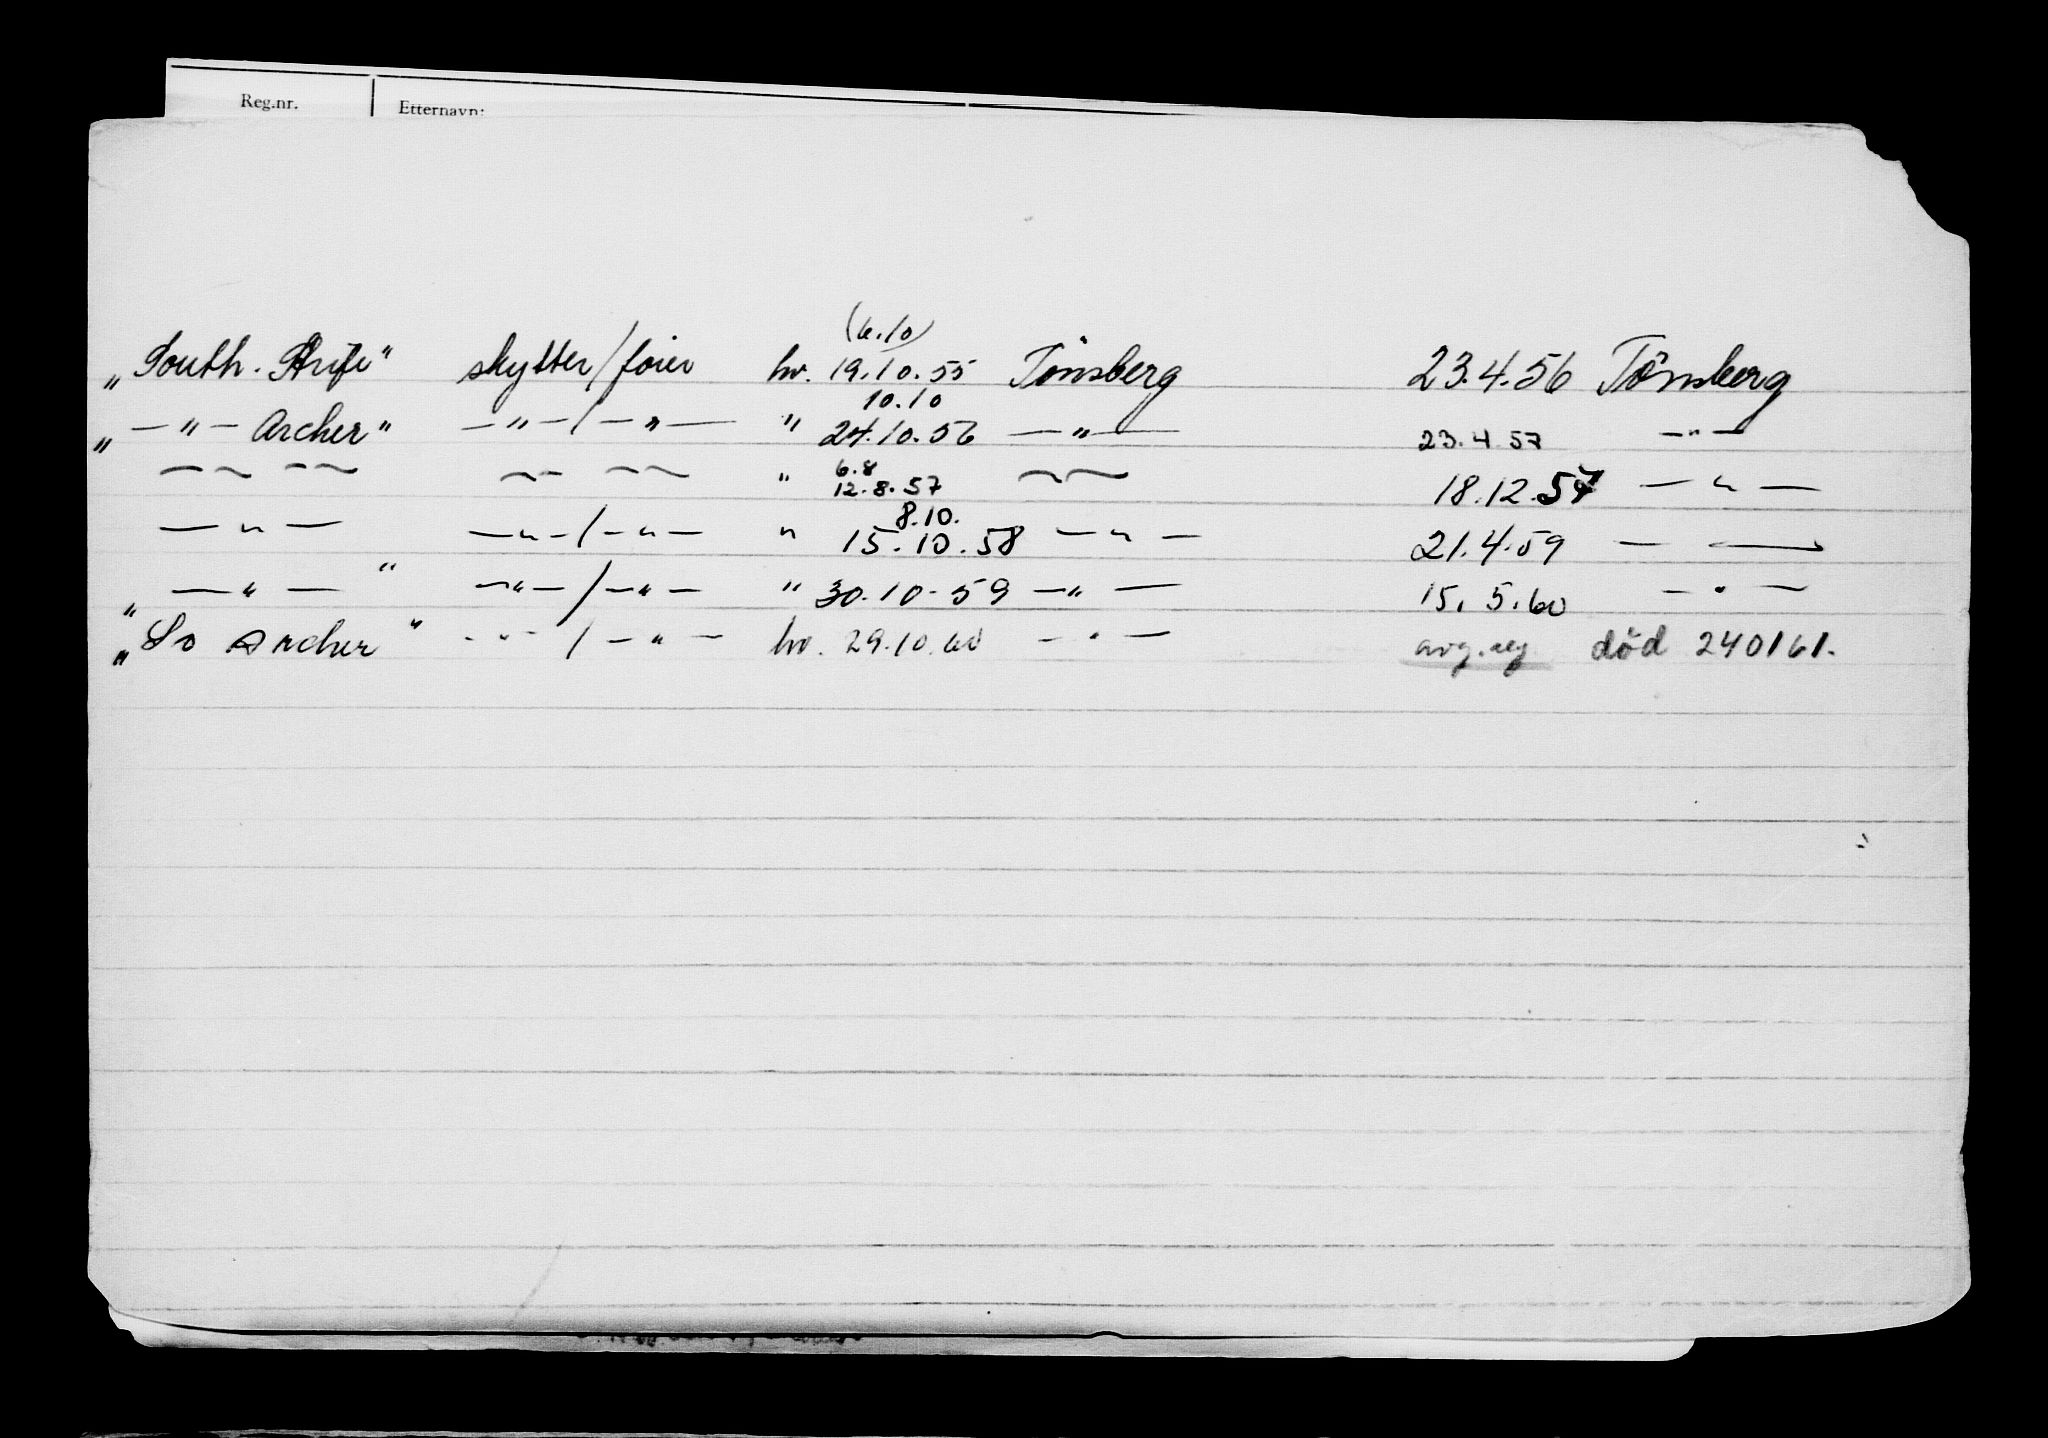 Reg.nr. Etternavn:
(6.10)
„South. Strife" skytter/fører hv. 19.10.55 Tönsberg 23.4.56 Tönsberg
10.10
„ — " — Archer" — " — / — " — " 24.10.56 — " — 23.4.57 — " —
6.8
~ ~ ~ ~ " 12.8.57 ~ ~ 18.12.57 — " —
8.10.
— " — — " — / — " — " 15.10.58 — " — 21.4.59 — —
„ — " — " — " — / — " — " 30.10.59 — " — 15.5.60 — " —
„So Archer" — " — / — " — hv. 29.10.60 — " — avg. død 240161.